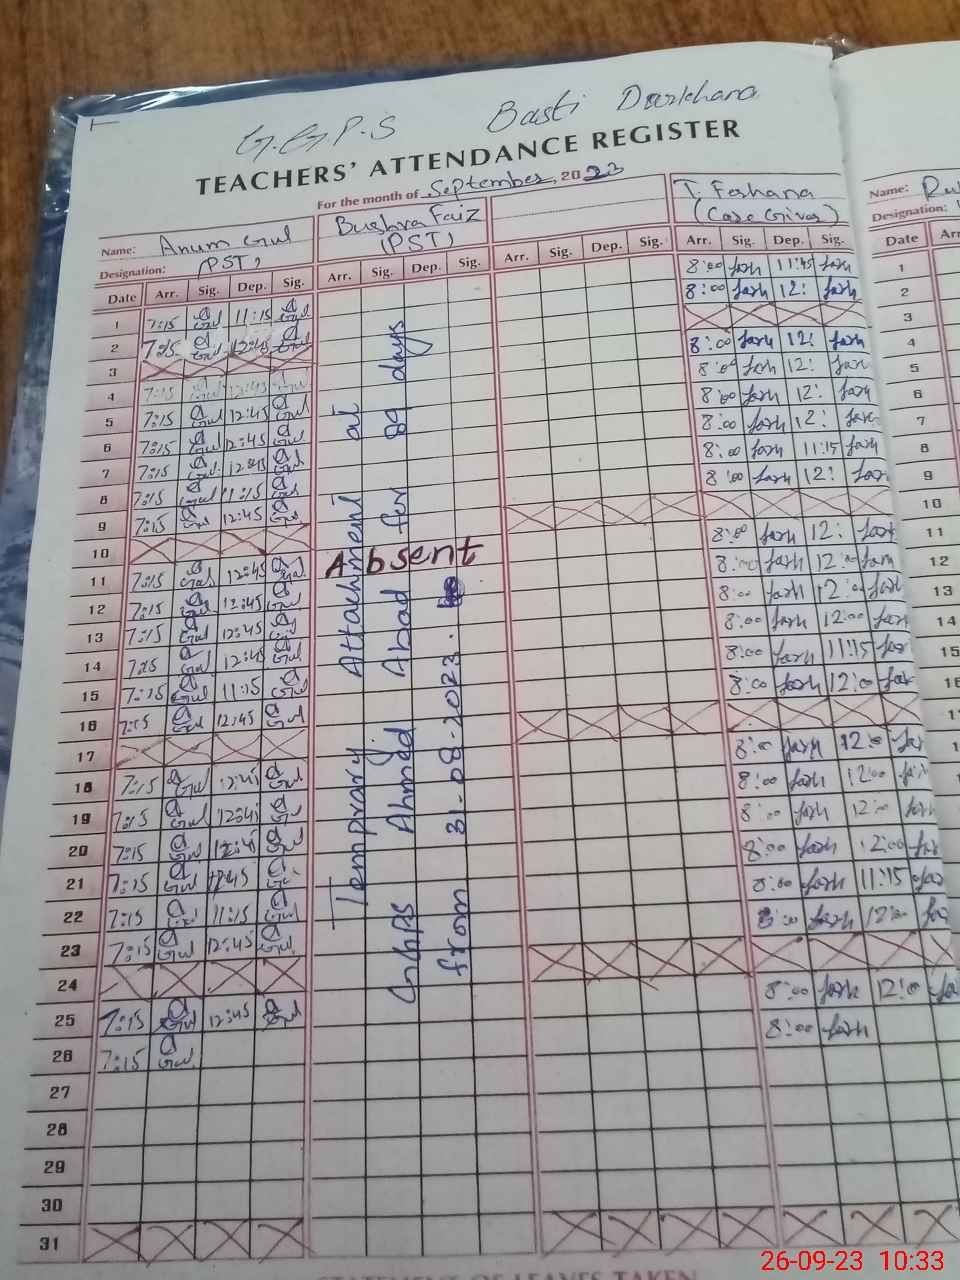 G.G.P.S Basti Darkhana
TEACHERS' ATTENDANCE REGISTER
For the month of September, 2023
Name: Anum Gul
Designation: (PST)
Bushra Faiz
(PST)
T. Farhana
(Care Giver)
Name:
Designation:
Date Arr. Sig. Dep. Sig. Arr. Sig. Dep. Sig. Arr. Sig. Dep. Sig. Arr. Sig. Dep. Sig. Date
1 7:15 Gul 11:15 Gul 8:00 farh 11:45 farh 1
2 7:15 Gul 12:45 Gul 8:00 farh 12: farh 2
3 3
4 7:15 Gul 12:45 Gul 8:00 farh 12: farh 4
5 7:15 Gul 12:45 Gul 8:00 farh 12: farh 5
6 7:15 Gul 12:45 Gul 8:00 farh 12: farh 6
7 7:15 Gul 12:45 Gul 8:00 farh 12: farh 7
8 7:15 Gul 11:15 Gul 8:00 farh 11:15 farh 8
9 7:15 Gul 12:45 Gul 8:00 farh 12: farh 9
10 10
11 7:15 Gul 12:45 Gul 8:00 farh 12: farh 11
12 7:15 Gul 12:45 Gul 8:00 farh 12:00 farh 12
13 7:15 Gul 12:45 Gul 8:00 farh 12:00 farh 13
14 7:15 Gul 12:45 Gul 8:00 farh 12:00 farh 14
15 7:15 Gul 11:15 Gul 8:00 farh 11:15 farh 15
16 7:15 Gul 12:45 Gul 8:00 farh 12:00 farh 16
17
18 7:15 Gul 12:45 Gul 8:00 farh 12:00 far
19 7:15 Gul 12:45 Gul 8:00 farh 12:00 far
20 7:15 Gul 12:45 Gul 8:00 farh 12:00 farh
21 7:15 Gul 12:45 Gul 8:00 farh 12:00 farh
22 7:15 Gul 11:15 Gul 8:00 farh 11:15 far
23 7:15 Gul 12:45 Gul 8:00 farh 12:00 far
24
25 7:15 Gul 12:45 Gul 8:00 farh 12:00 fa
26 7:15 Gul 8:00 farh
27
28
29
30
31
Absent
Temprary Attachment at
GHPS Ahmad Abad for 89 days
from 31-08-2023.
STATEMENT OF LEAVES TAKEN
26-09-23 10:33